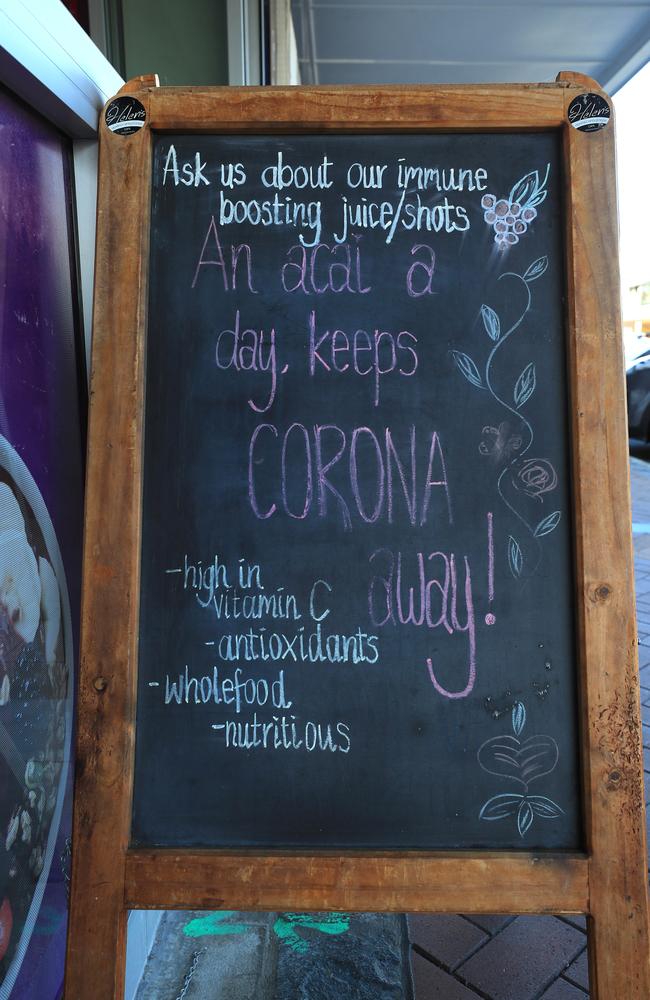 Helen's
Helen's
Ask us about our immune
boosting juice/shots
An acai a
day, keeps
CORONA
away!
-high in
vitamin C
-antioxidants
-wholefood
-nutritious